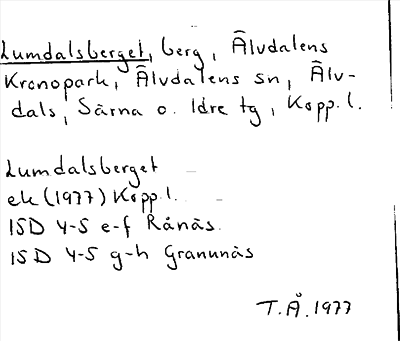 Lumdalsberget, berg, Älvdalens
Kronopark, Älvdalens sn, Älv-
dals, Särna o. Idre tg, Kopp. l.
Lumdalsberget
ek (1977) Kopp. l.
15D 4-5 e-f Rånäs.
15D 4-5 g-h Granunäs
T.Å. 1977